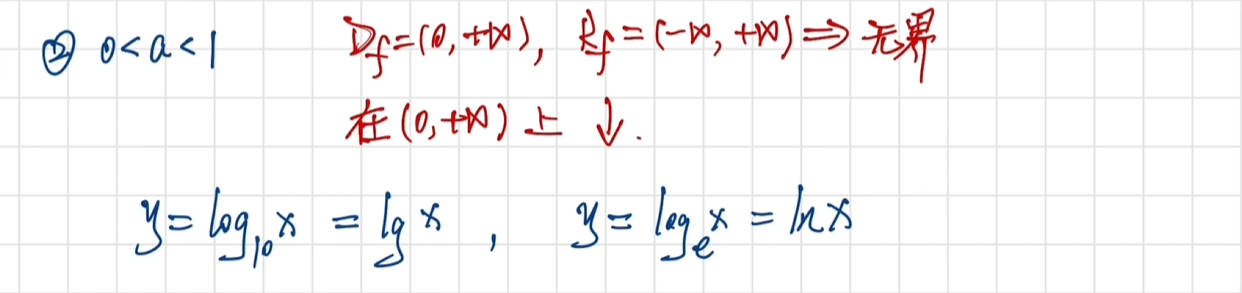 ② 0<a<1 D_f=(0,+∞), R_f=(-∞,+∞)⇒无界
在(0,+∞)上 ↓.
y=log₁₀x=lg x, y=logₑx=ln x